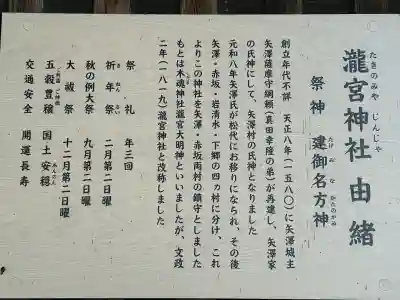 瀧宮神社 由緒
たきのみや じんじゃ
祭神 建御名方神
たけみなかたのかみ
創立年代不詳 天正八年(一五八〇)に矢澤城主
矢澤薩摩守綱頼(真田幸隆の弟)が再建し、矢澤家
の氏神にして、矢澤村の氏神となりました
元和八年矢澤氏が松代にお移りになられ、その後
矢澤・赤坂・岩清水・下郷の四ヵ村に分け、これ
よりこの神社を矢澤・赤坂両村の鎮守としました
もとは木魂神社瀧宮大明神といいましたが、文政
二年(一八一九)瀧宮神社と改称しました
祭礼 年三回
祈年祭 二月第二日曜
きねんさい
秋の例大祭 九月第二日曜
大祓祭 十二月第二日曜
五穀豊穣 国土安穏
ごこくほうじょう あんのん
交通安全 開運長寿